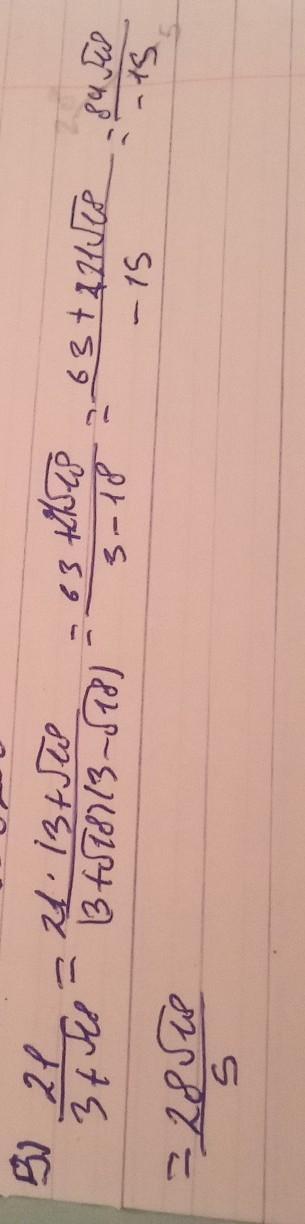 5) 21/(3+√18) = 21·(3+√18)/((3+√18)(3-√18)) = (63+21√18)/(3-18) = (63+21√18)/(-15) = 84√18/(-15)
= 28√18/5